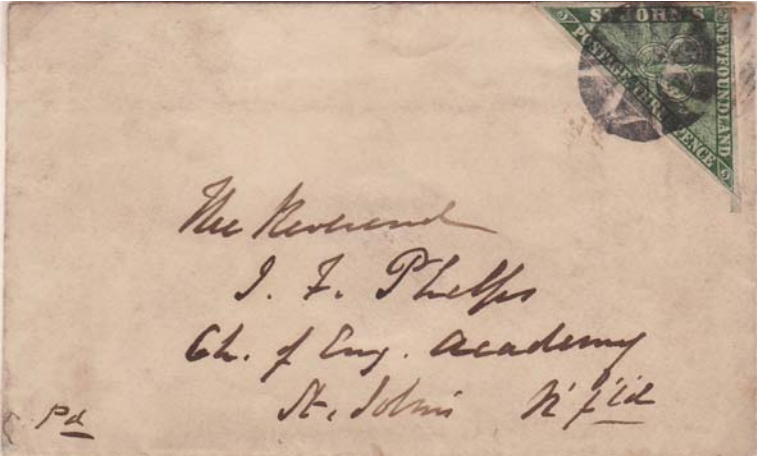 3 ST JOHN'S
NEWFOUNDLAND
POSTAGE THREE PENCE 3
The Reverend
J. F. Phelps
Ch. of Eng. Academy
St. John's N'f'ld
Pd